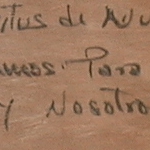 itus de Au
amos. Para
y Nosotro